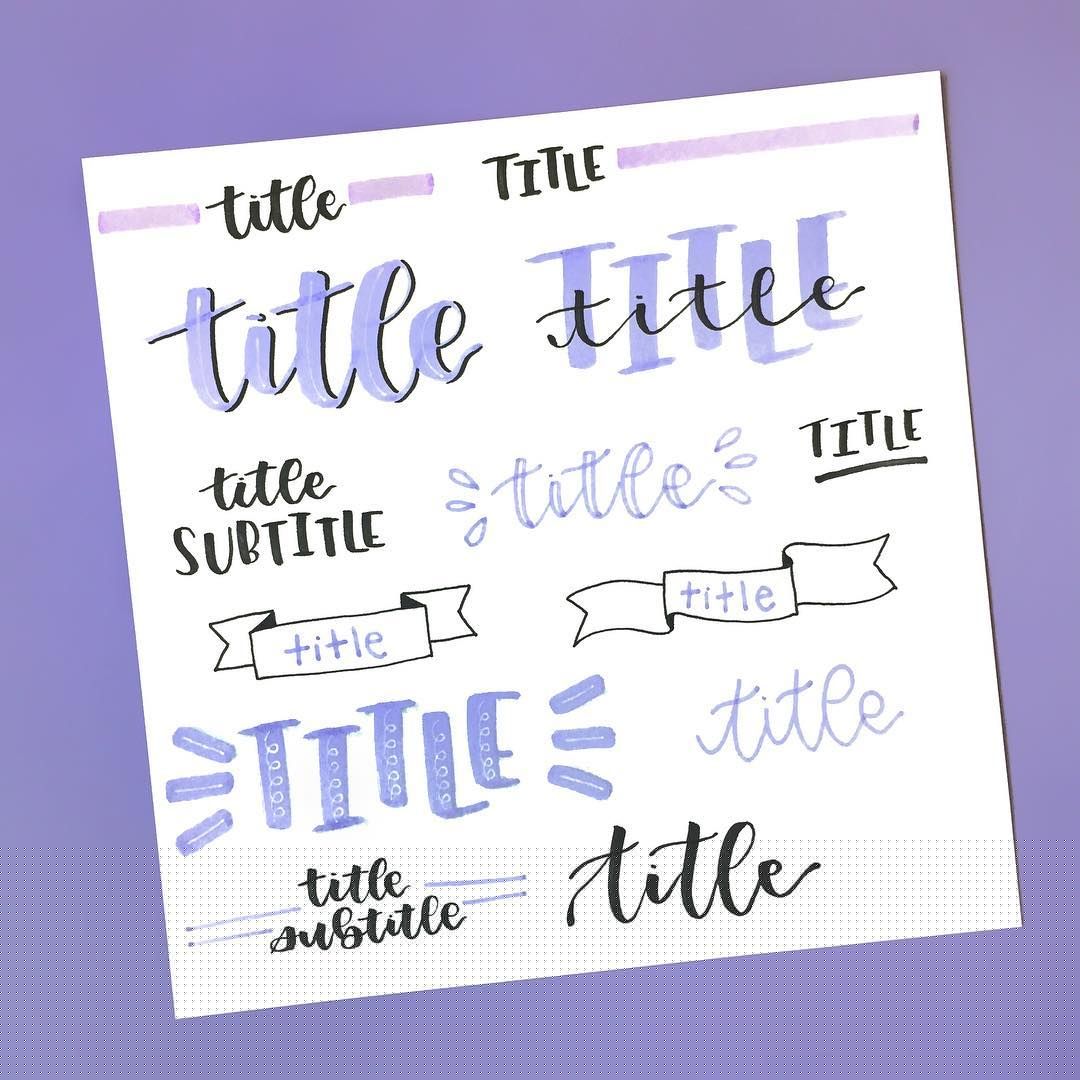 title TITLE
title TITLE title
title
SUBTITLE
title
TITLE
title title
TITLE title
title
subtitle
title